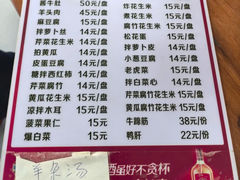 酱牛肚 50元/盘
羊头肉 45元/盘
麻豆腐 15元/盘
拌萝卜丝 14元/盘
芹菜花生米 14元/盘
拍黄瓜 14元/盘
皮蛋豆腐 14元/盘
糖拌西红柿 14元/盘
芹菜腐竹 14元/盘
黄瓜花生米 15元/盘
凉拌木耳 15元/盘
菠菜果仁 15元
爆白菜 15元
炸花生米 15元/盘
煮花生米 15元/盘
腐竹花生米 15元/盘
松花蛋 15元/盘
拌萝卜皮 14元/盘
小葱豆腐 14元/盘
老虎菜 15元/盘
拌白菜心 14元/盘
黄瓜腐竹 15元/盘
腐竹花生米 15元/盘
牛蹄筋 38元/份
鸭肝 22元/份
羊杂汤
酒虽好不贪杯